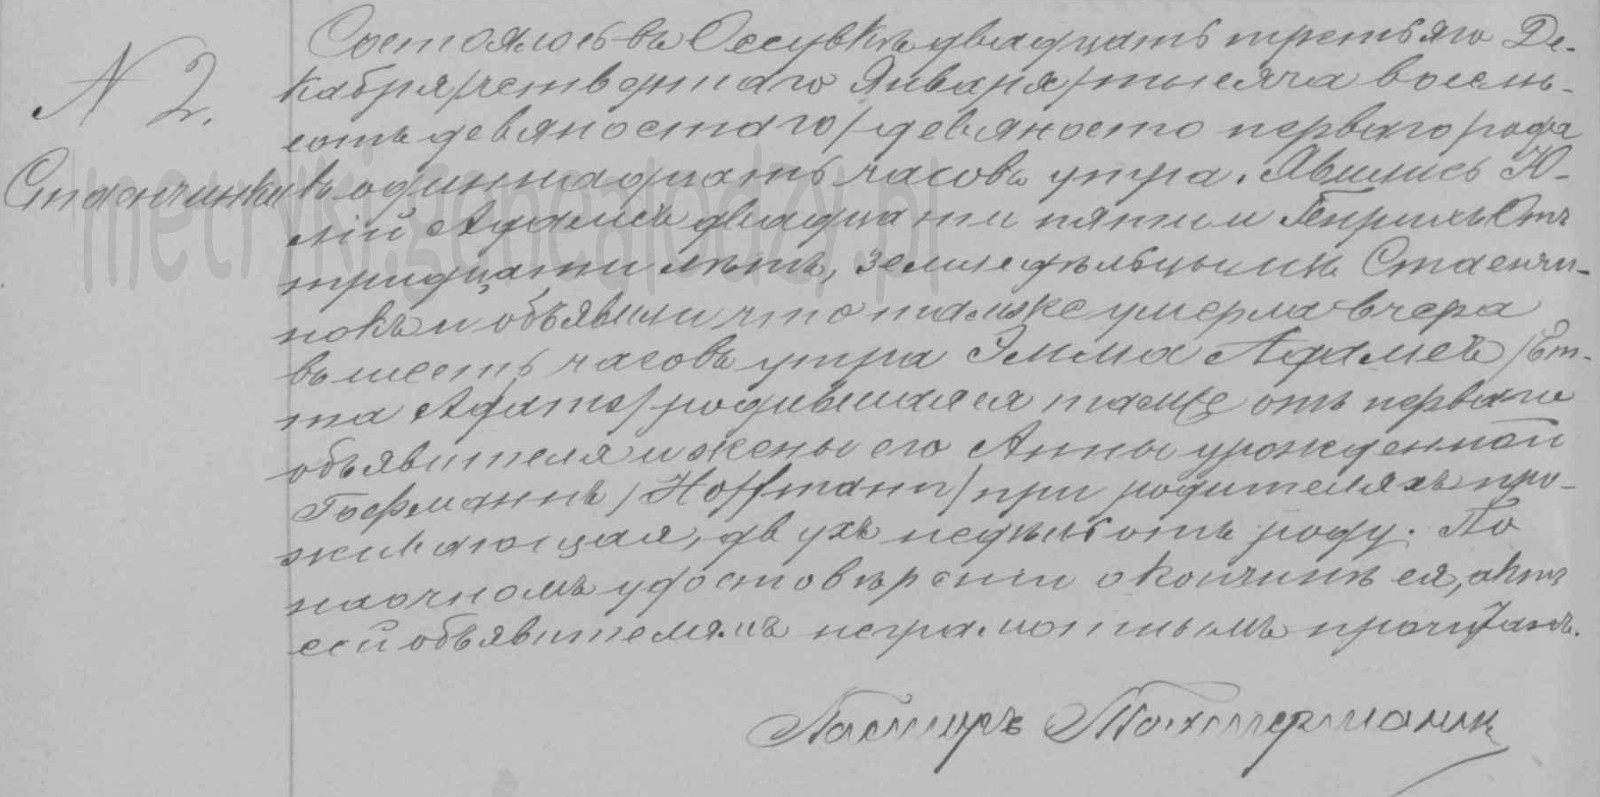 N 2.
Стаенчинки
Состоялось въ Оссувкѣ двадцать третьяго Де-
кабря/четвертаго Января/тысяча восемь-
сотъ девяностаго/девяносто перваго/года
въ одиннадцать часовъ утра. Явились Ю-
лій Адамсъ двадцати пяти и Генрихъ Отъ
тридцати лѣтъ, земледѣльцы изъ Стаенчи-
нокъ и объявили что тамже умерла вчера
въ шесть часовъ утра Эмма Адамсъ/Em-
ma Adams/родившаяся тамже отъ перваго
объявителя и жены его Анны урожденной
Гофманнъ/Hoffmann/при родителяхъ про-
живающая, двухъ недѣль отъ роду. По
наочномъ удостовѣреніи о кончинѣ ея, актъ
сей объявителямъ неграмотнымъ прочитанъ.
Пасторъ
metryki.genealodzy.pl